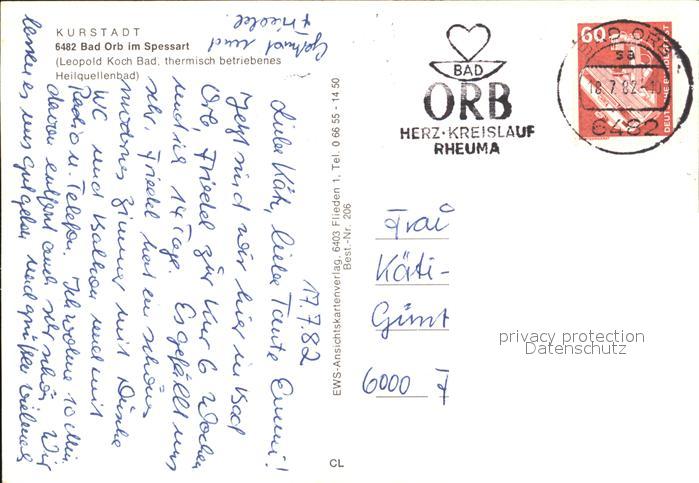 KURSTADT
6482 Bad Orb im Spessart
(Leopold Koch Bad, thermisch betriebenes
Heilquellenbad)
17.7.82
Liebe Käti, liebe Tante Emmi!
Jetzt sind wir hier in Bad
Orb, Friedel zur Kur 6 Wochen
und ich 14 Tage. Es gefällt uns
sehr. Friedel hat ein schönes
modernes Zimmer mit Dusche
WC und Balkon und mit
Radio u. Telefon. Ich wohne 10 Min
davon entfernt auch sehr schön. Wir
lassen es uns gut gehen und grüßen vielmals
Gertrud und
Friedel
EWS-Ansichtskartenverlag, 6403 Flieden 1, Tel. 0 66 55 - 14 50
Best.-Nr. 206
CL
BAD
ORB
HERZ·KREISLAUF
RHEUMA
60
DEUTSCHE BUNDESPOST
BAD ORB
sa
18.7.82
6482
Frau
Käti
Günt
6000 F
privacy protection
Datenschutz